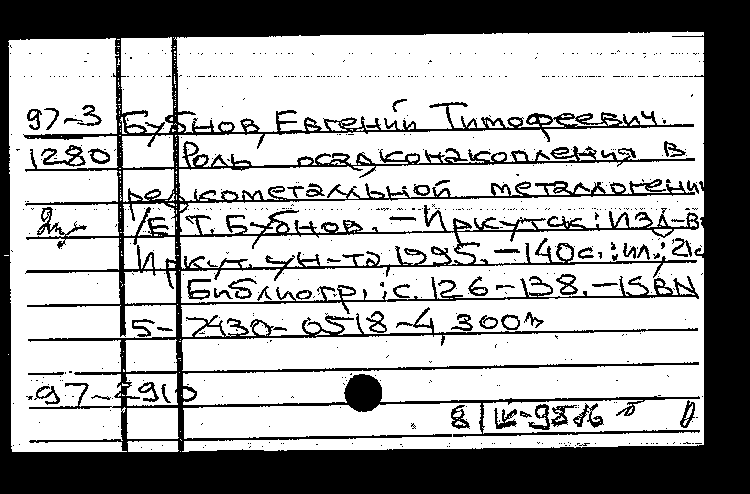 97-3 Бубнов, Евгений Тимофеевич.
1280 Роль осадконакопления в
редкометалльной металлогении
/Е.Т. Бубнов. – Иркутск: Изд-во
Иркут. ун-та, 1995. – 140с.: ил.; 21с
Библиогр.: с. 126-138. – ISBN
5-7430-0518-4, 300
97-2910
8/IX-98